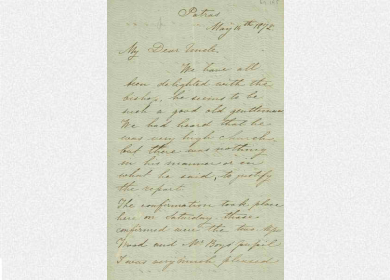 Patras
May 14th 1872
My Dear Uncle,
We have all
been delighted with the
bishop, he seems to be
such a good old gentleman
We had heard that he
was very high church,
but there was nothing
in his manner or in
what he said, to justify
the report.
The confirmation took place
here on Saturday. those
confirmed were the two
Wood and Mr Boys pupil
I was very much pleased